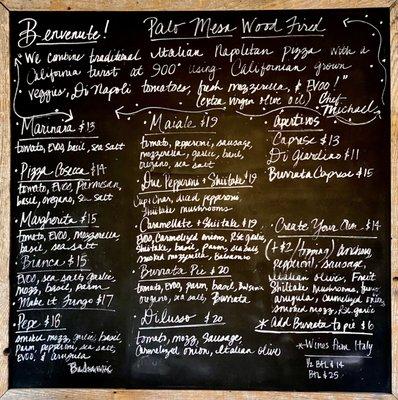 Benvenute!
Palo Mesa Wood Fired
We combine traditional Italian Napoletan pizza with a
California twist at 900° using Californian grown
veggies, Di Napoli tomatoes, fresh mozzarella, & EVOO!"
(extra virgin olive oil) Chef
Michael
Marinara $13
tomato, EVOO, basil, sea salt
Pizza Cosecca $14
tomato, EVOO, Parmesan,
basil, oregano, sea salt
Margherita $15
tomato, EVOO, mozzarella
basil, sea salt
Bianca $15
EVOO, sea salt, garlic
mozz, basil, parm
Make it Fungo $17
Pepe $18
smoked mozz, garlic, basil,
parm, pepperoni, sea salt
EVOO, & arugula
Maiale $19
tomato, pepperoni, sausage,
mozzarella, garlic, basil,
oregano, sea salt
Due Pepperoni + Shiitake $19
Cup & Char, diced pepperoni,
Shiitake mushrooms
Caramellate + Shiitake $19
EVOO, Caramelized onion, R. garlic,
Shiitake, Parm, sea salt
smoked mozzarella, Balsamic
Burrata Pie $20
tomato, EVOO, parm, basil,
oregano, sea salt, Burrata
Di Lusso $20
tomato, mozz, sausage,
Caramelized onion, Italian olives
Aperitivos
Caprese $13
Di Giardino $11
Burrata Caprese $15
Create Your Own $14
(+$2/topping) anchovy,
pepperoni, sausage,
Italian olives, Fruit
Shiitake mushrooms,
arugula, caramelized onion
smoked mozz, R. garlic
* Add Burrata to pie $6
*Wines from Italy
1/2 BTL $14
BTL $25